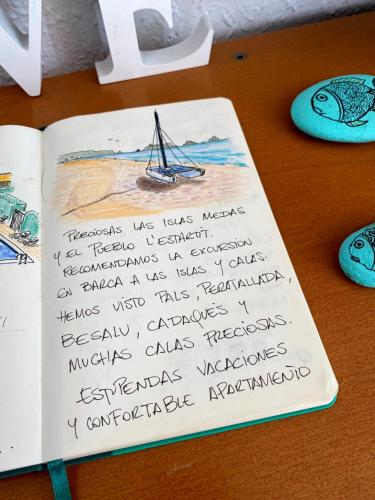 NE
PRECIOSAS LAS ISLAS MEDAS
Y EL PUEBLO L'ESTARTIT.
RECOMENDAMOS LA EXCURSION
EN BARCA A LAS ISLAS Y CALAS.
HEMOS VISTO PALS, PERATALLADA,
BESALU, CADAQUÉS Y
MUCHAS CALAS PRECIOSAS.
ESTUPENDAS VACACIONES
Y CONFORTABLE APARTAMENTO